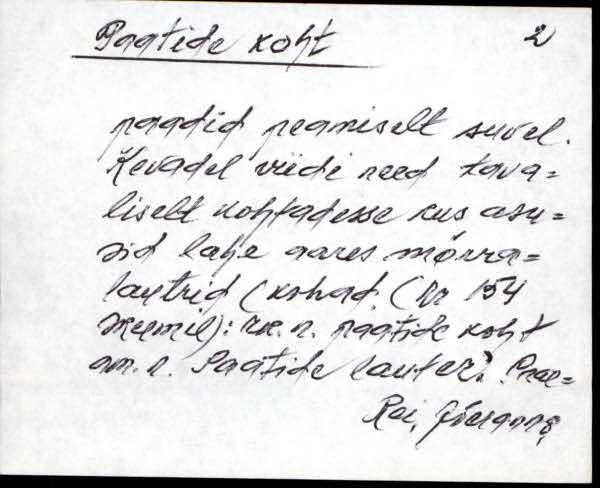 Paatide koht 2
paadid peamiselt suvel.
Kevadel viidi need tava=
liselt kohtadesse kus asu=
sid lahe aares mõrra=
lautrid (kohad (Nr 154
skeemil): rk. n. paatide koht
am. n. Paatide lauter.